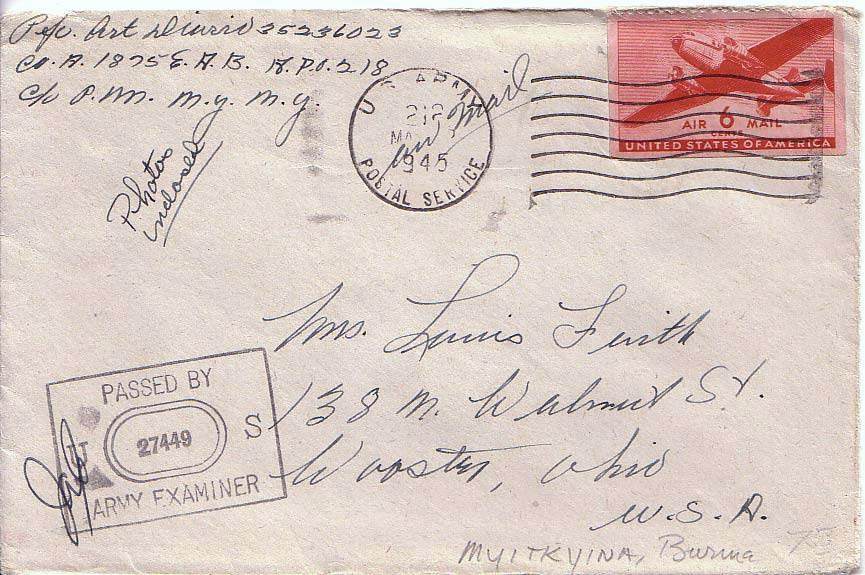 Pfc. Art 35236023
Co. A. 1875 E. A. B. A.P.O. 218
c/o P.M. N.Y. N.Y.
Photos
inclosed
U.S. ARMY
212
MA
1945
POSTAL SERVICE
air mail
AIR 6 MAIL
CENTS
UNITED STATES OF AMERICA
Mrs. Louis Firth
138 N. Walnut St.
Wooster, Ohio
U.S.A.
PASSED BY
U 27449 S
ARMY EXAMINER
MYITKYINA, Burma 75